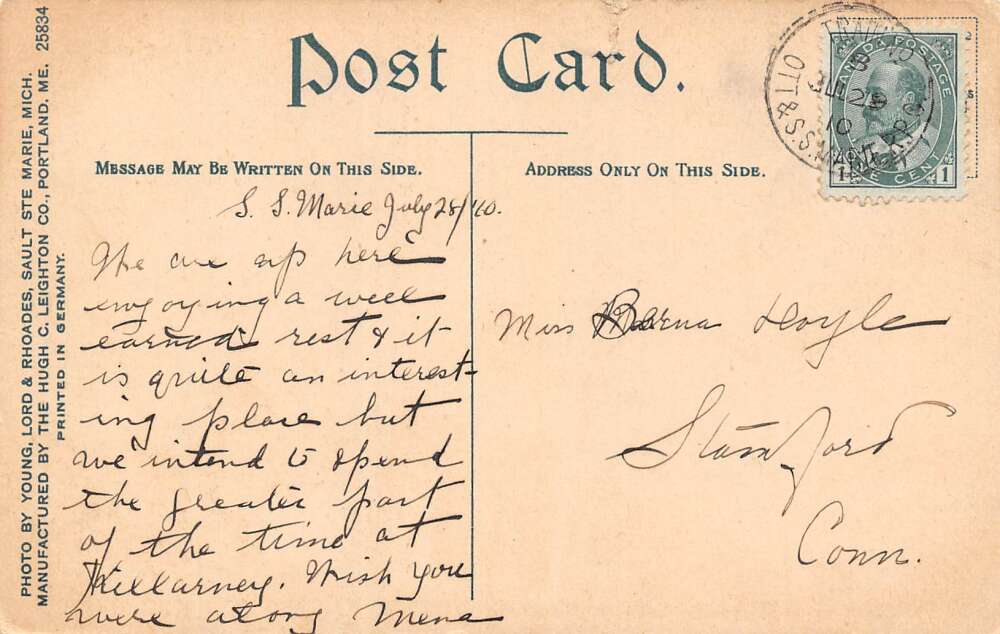 PHOTO BY YOUNG, LORD & RHOADES, SAULT STE MARIE, MICH.
MANUFACTURED BY THE HUGH C. LEIGHTON CO., PORTLAND, ME. 25834
PRINTED IN GERMANY.
Post Card.
MESSAGE MAY BE WRITTEN ON THIS SIDE.
S. S. Marie July 28/10.
We are up here
enjoying a well
earned rest & it
is quite an interest-
ing place but
we intend to spend
the greater part
of the time at
Killarney. Wish you
were along Mena
ADDRESS ONLY ON THIS SIDE.
Miss Hoyle
Stamford
Conn.
CANADA POSTAGE
1 ONE CENT 1
OTT & S.S.MARIE
29
10